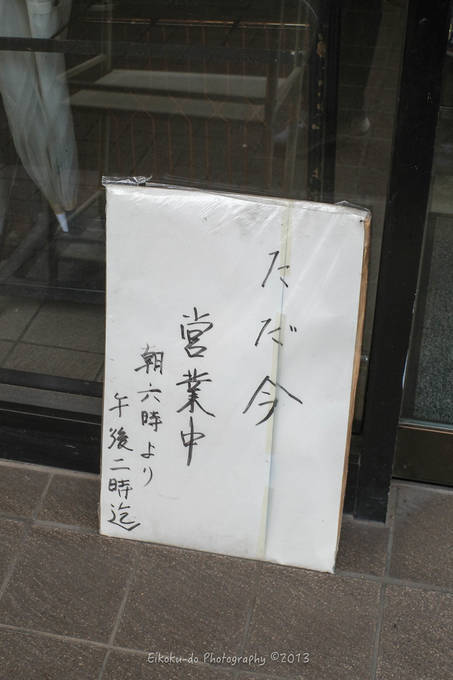 ただ今
営業中
朝六時より
午後二時迄
Eikoku-do Photography ©2013